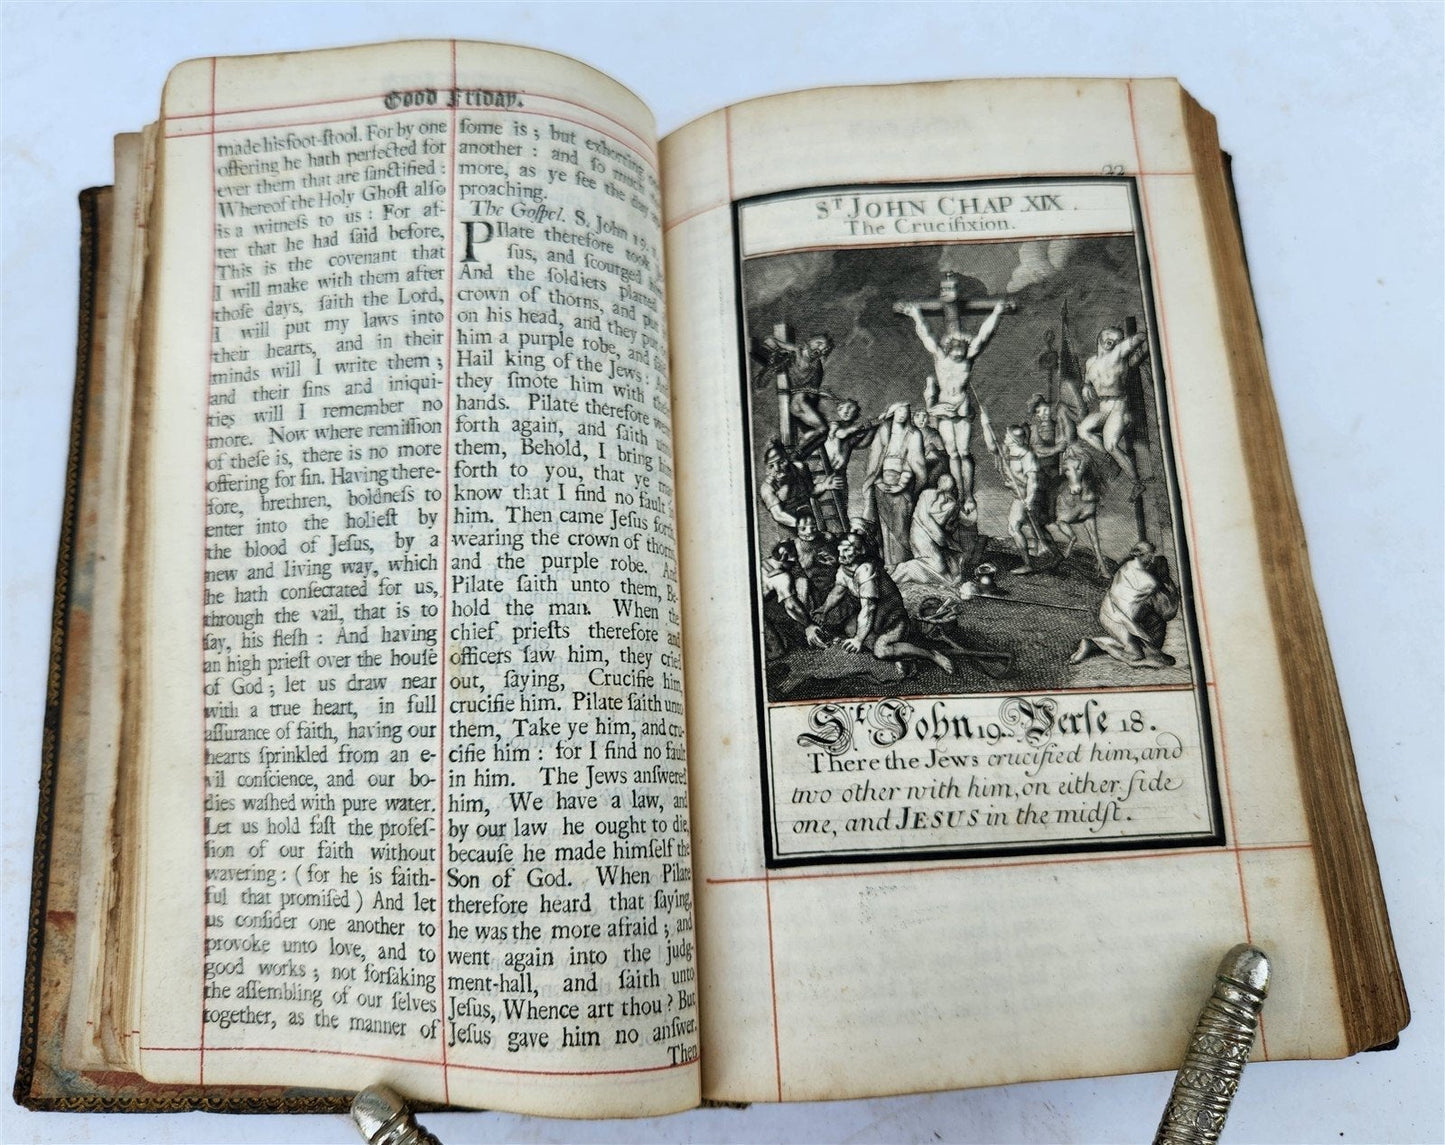 Good Friday.
made his foot-ſtool. For by one
offering he hath perfected for
ever them that are ſanctified:
Whereof the Holy Ghoſt alſo
is a witneſs to us: For af-
ter that he had ſaid before,
This is the covenant that
I will make with them after
thoſe days, ſaith the Lord,
I will put my laws into
their hearts, and in their
minds will I write them;
and their ſins and iniqui-
ties will I remember no
more. Now where remiſſion
of theſe is, there is no more
offering for ſin. Having there-
fore, brethren, boldneſs to
enter into the holieſt by
the blood of Jeſus, by a
new and living way, which
he hath conſecrated for us,
through the vail, that is to
ſay, his fleſh: And having
an high prieſt over the houſe
of God; let us draw near
with a true heart, in full
aſſurance of faith, having our
hearts ſprinkled from an e-
vil conſcience, and our bo-
dies waſhed with pure water.
Let us hold faſt the profeſ-
ſion of our faith without
wavering: (for he is faith-
ful that promiſed) And let
us conſider one another to
provoke unto love, and to
good works; not forſaking
the aſſembling of our ſelves
together, as the manner of
ſome is; but exhorting one
another: and ſo much the
more, as ye ſee the day
proaching.
The Goſpel. S. John 19.
Pilate therefore took
ſus, and ſcourged
And the ſoldiers platted
crown of thorns, and put
on his head, and they put
him a purple robe, and ſaid
Hail king of the Jews:
they ſmote him with their
hands. Pilate therefore went
forth again, and ſaith unto
them, Behold, I bring him
forth to you, that ye may
know that I find no fault in
him. Then came Jeſus forth
wearing the crown of thorns,
and the purple robe. And
Pilate ſaith unto them, Be-
hold the man. When the
chief prieſts therefore and
officers ſaw him, they cried
out, ſaying, Crucifie him,
crucifie him. Pilate ſaith unto
them, Take ye him, and cru-
cifie him: for I find no fault
in him. The Jews anſwered
him, We have a law, and
by our law he ought to die,
becauſe he made himſelf the
Son of God. When Pilate
therefore heard that ſaying,
he was the more afraid; and
went again into the judg-
ment-hall, and ſaith unto
Jeſus, Whence art thou? But
Jeſus gave him no anſwer.
Then
22
ST JOHN CHAP XIX.
The Crucifixion.
St. John 19. Verſe 18.
There the Jews crucified him, and
two other with him, on either ſide
one, and JESUS in the midſt.